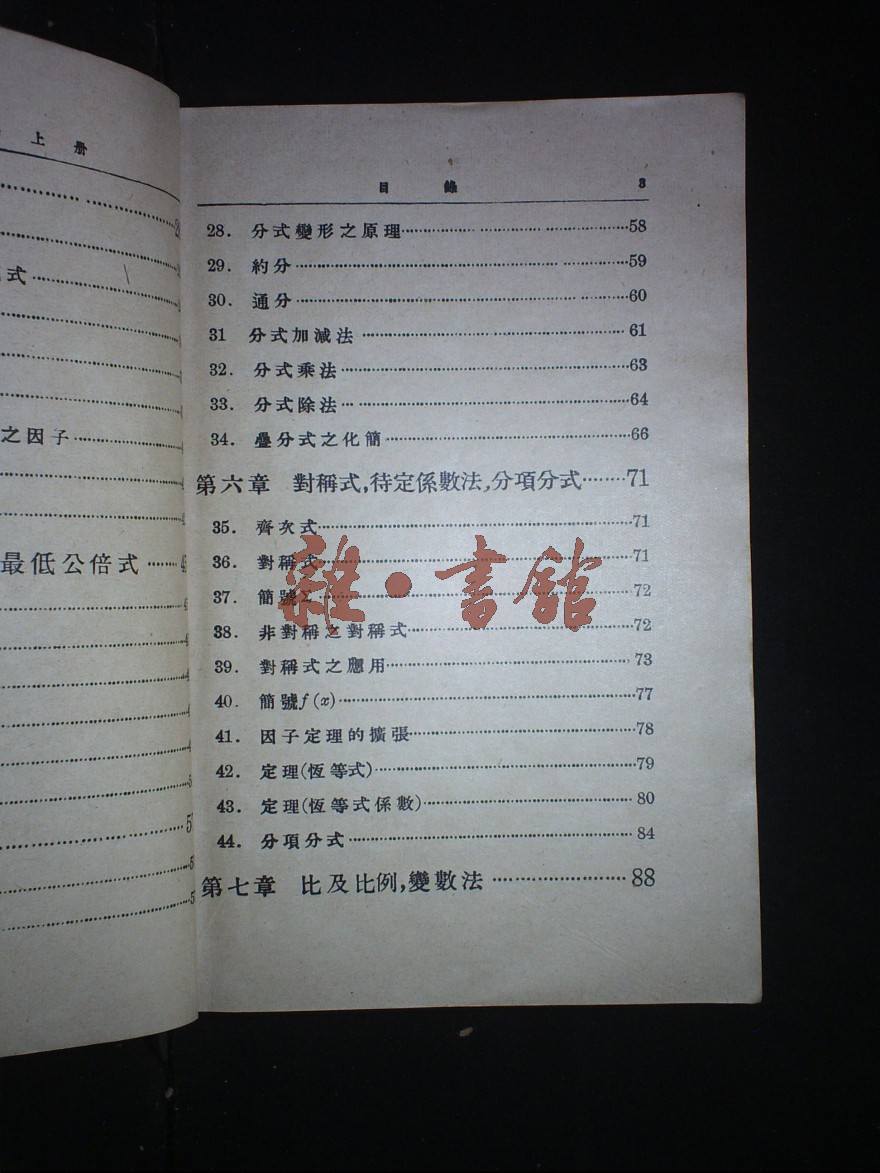 上册
式
之因子
最低公倍式
目錄 3
28. 分式變形之原理 58
29. 約分 59
30. 通分 60
31 分式加減法 61
32. 分式乘法 63
33. 分式除法 64
34. 疊分式之化簡 66
第六章 對稱式,待定係數法,分項分式 71
35. 齊次式 71
36. 對稱式 71
37. 簡號Σ 72
38. 非對稱之對稱式 72
39. 對稱式之應用 73
40. 簡號f(x) 77
41. 因子定理的擴張 78
42. 定理(恆等式) 79
43. 定理(恆等式係數) 80
44. 分項分式 84
第七章 比及比例,變數法 88
雜·書館